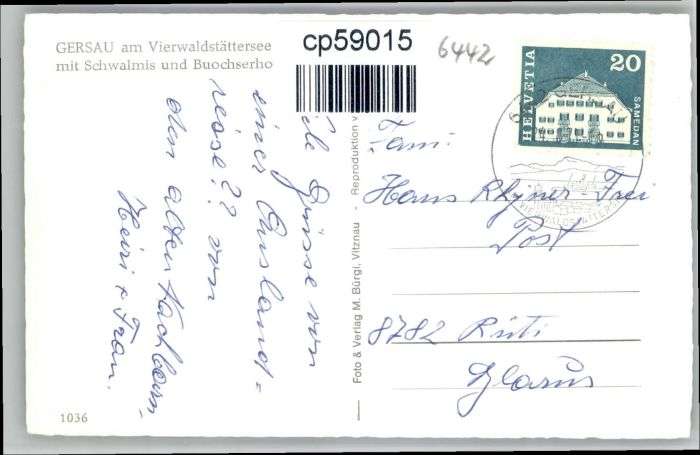 GERSAU am Vierwaldstättersee
mit Schwalmis und Buochserho
cp59015
6442
HELVETIA
20
SAMEDAN
VIERWALDSTÄTTERSEE
Viele Grüsse von
einer Ausland-
reise?? von
den alten Nachbarn,
Heiri & Frau.
Foto & Verlag M. Bürgi, Vitznau - Reproduktion v
Fam.
Hans Rhyner-Frei
Post
8782 Rüti
Glarus
1036